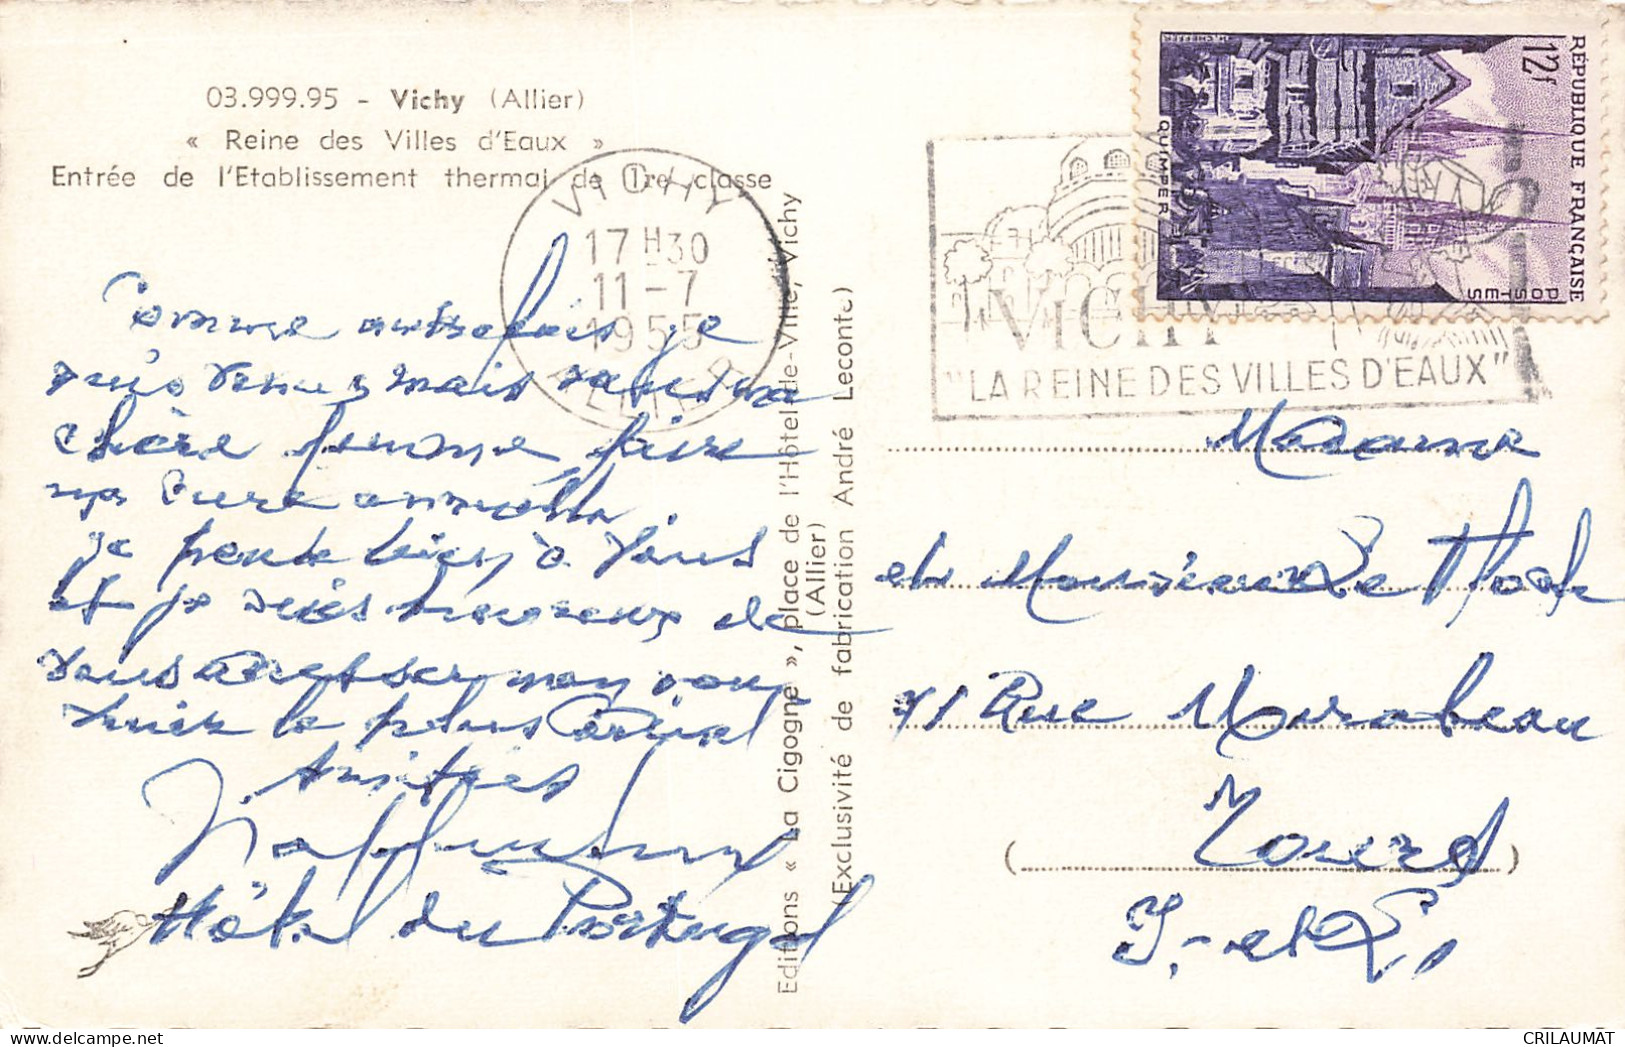 03.999.95 - Vichy (Allier)
« Reine des Villes d'Eaux »
Entrée de l'Etablissement thermal de 1re classe
VICHY
17 H 30
11-7
1955
ALLIER
Comme autrefois je
suis venu mais sans ma
chère femme faire
ma cure annuelle
je pense bien à vous
et je suis heureux de
vous adresser mon sou-
venir le plus cordial
Amitiés
Hôtel du Portugal
Editions « La Cigogne », place de l'Hôtel-de-Ville, Vichy
(Allier)
(Exclusivité de fabrication André Leconte)
RÉPUBLIQUE FRANÇAISE
POSTES
12f
QUIMPER
VICHY
"LA REINE DES VILLES D'EAUX"
Madame
et Monsieur De
Rue Mirabeau
( Tours )
I.-et-L.
CRILAUMAT